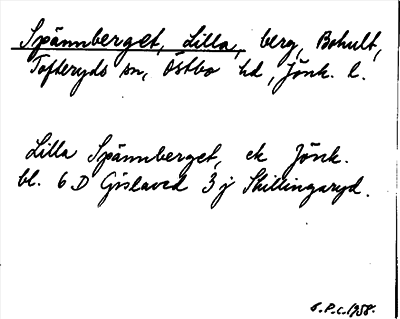 Spännberget, Lilla, berg, Bohult,
Tofteryds sn, Östbo hd, Jönk. l.
Lilla Spännberget, ek Jönk.
bl. 6 D Gislaved 3 j Skillingaryd.
P.C. 1958.